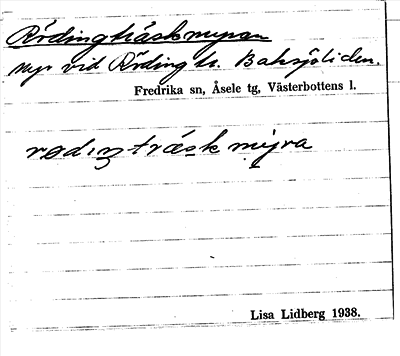 Rödingträskmyran
Myr vid Rödingtr. Baksjöliden.
Fredrika sn, Åsele tg, Västerbottens l.
rødıŋtræsk myra
Lisa Lidberg 1938.